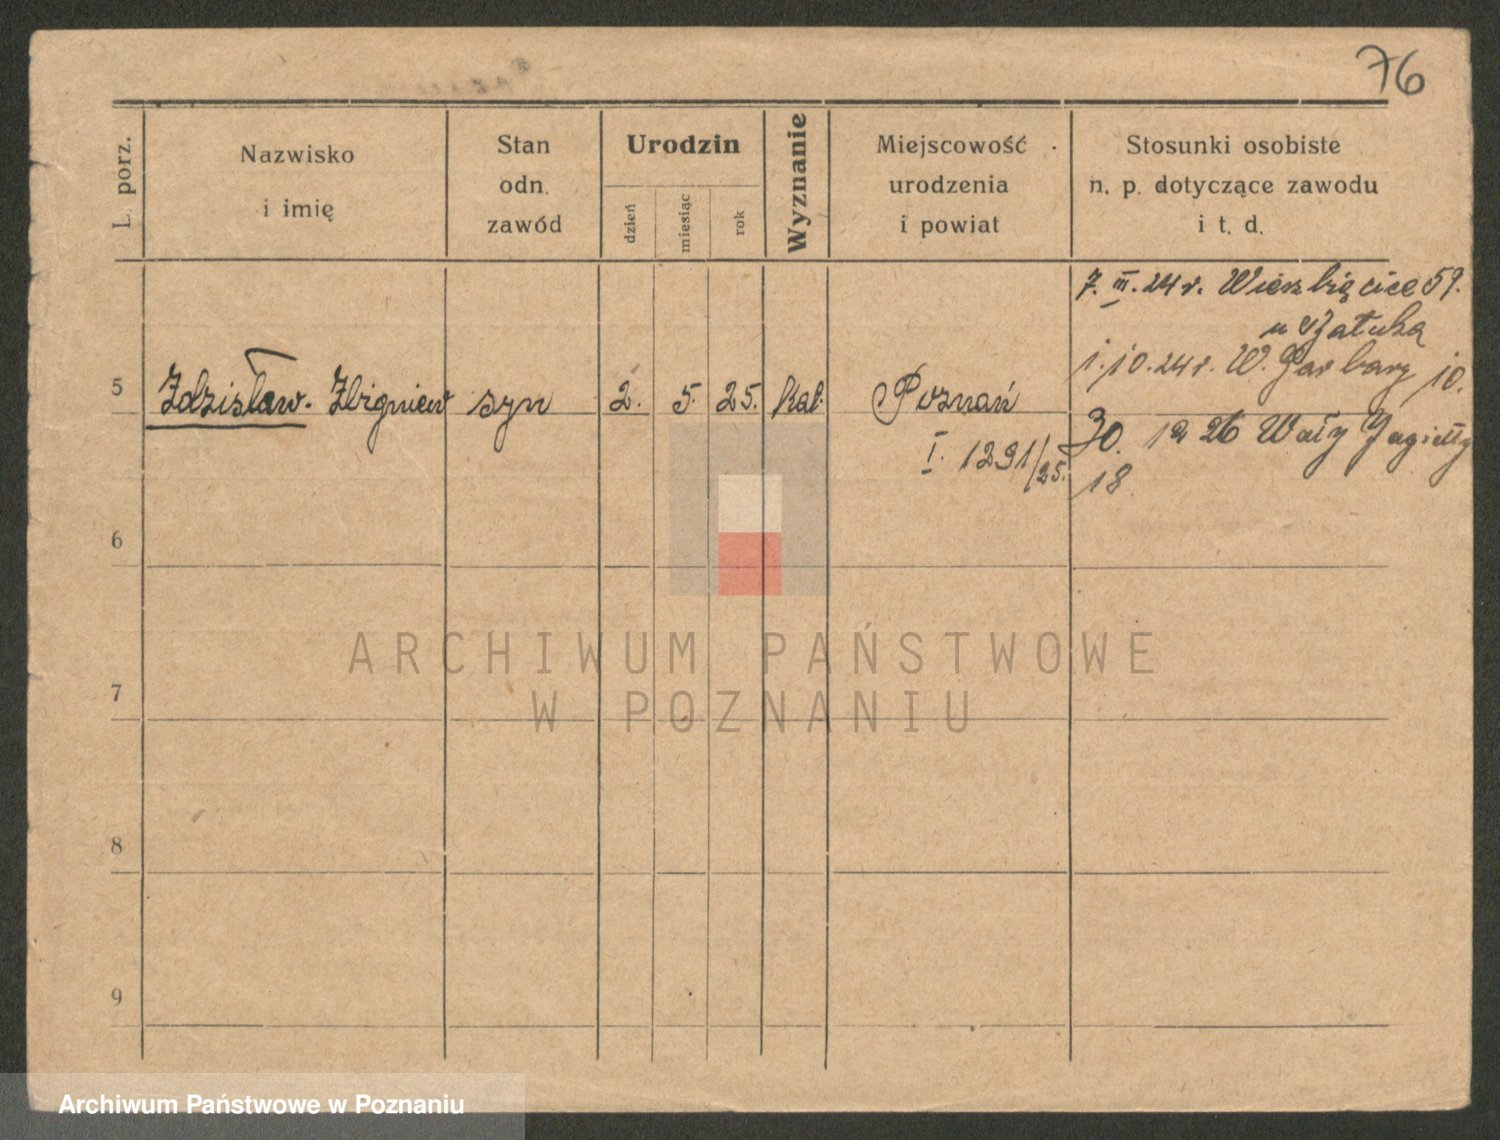 76
L. porz.
Nazwisko
i imię
Stan
odn.
zawód
Urodzin
dzień
miesiąc
rok
Wyznanie
Miejscowość
urodzenia
i powiat
Stosunki osobiste
n. p. dotyczące zawodu
i t. d.
7. III. 24 r. Wierzbięcice 59.
u
1.10.24 r. W. Garbary 10.
5 Zdzisław. Zbigniew syn 2. 5. 25. kat. Poznań
I. 1291/25.
30. 12 26 Wały Jagiełły
18
6
7
8
9
ARCHIWUM PAŃSTWOWE
W POZNANIU
Archiwum Państwowe w Poznaniu